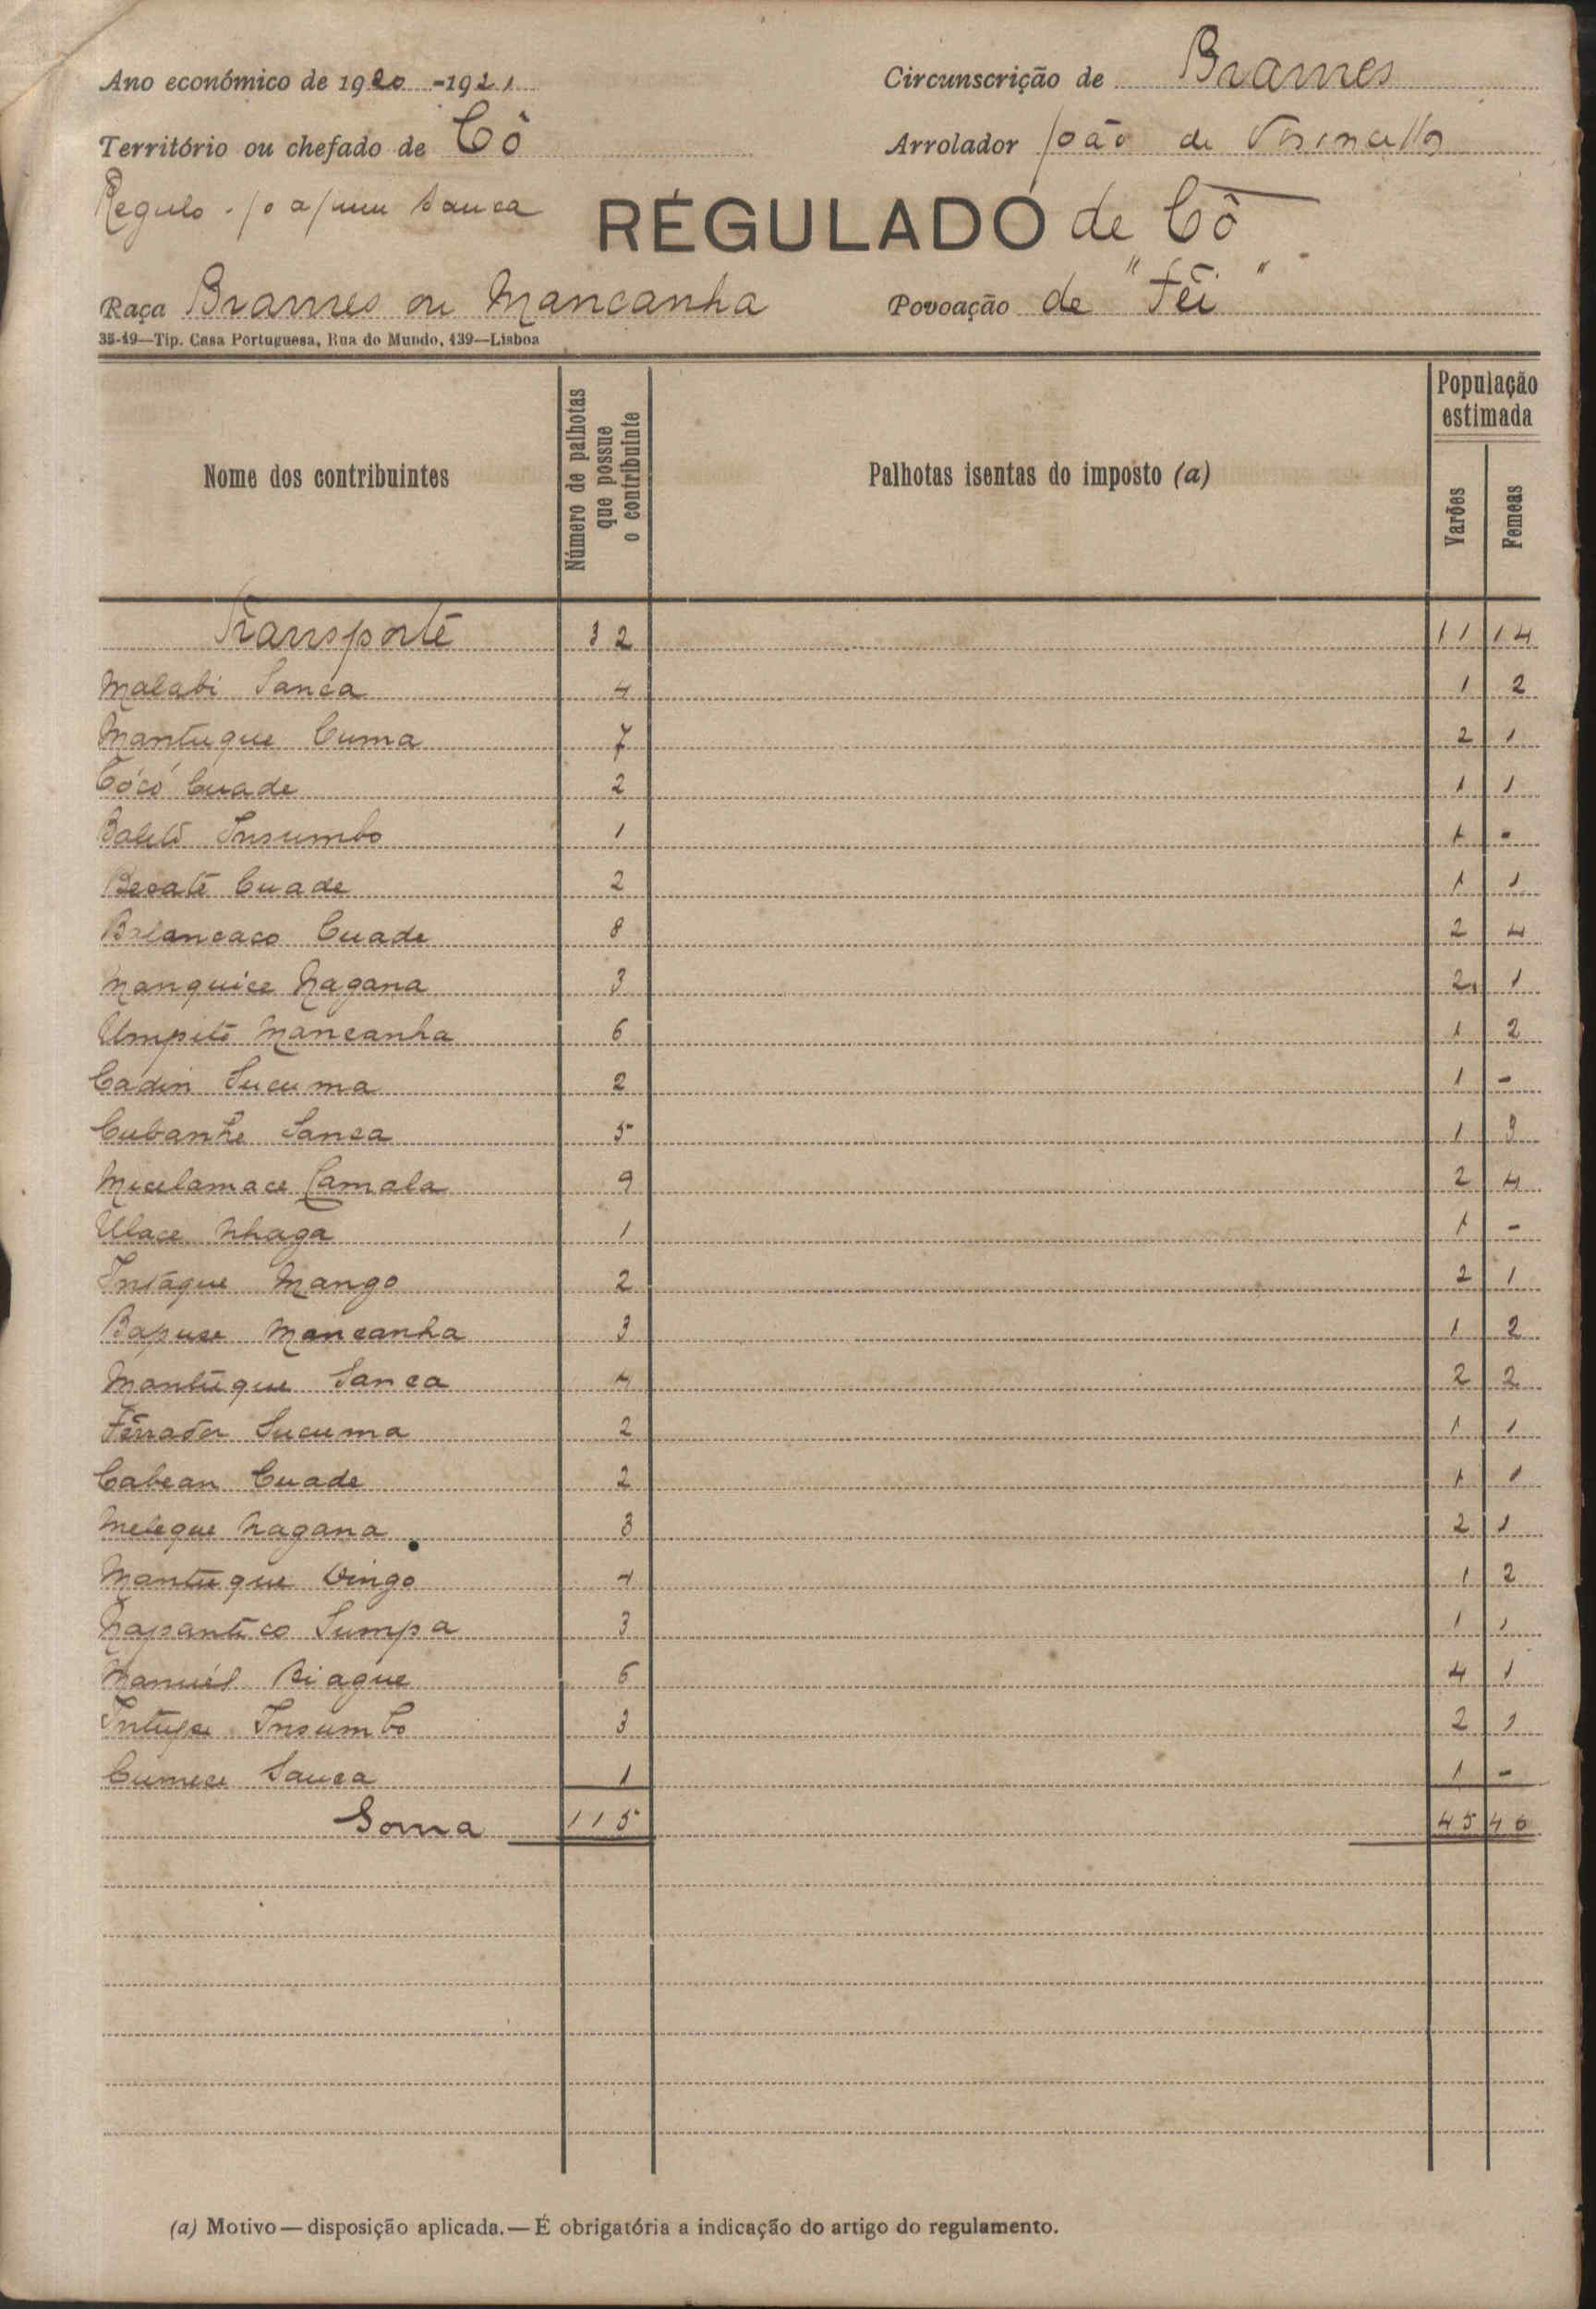 Ano económico de 1920-1921
Circunscrição de Brames
Território ou chefado de Cô
Arrolador João de
Regulo Sanca
REGULADO de Cô
Raça Brames ou Mancanha
Povoação de "Tèi"
35-19—Tip. Casa Portuguesa, Rua do Mundo, 139—Lisboa
Nome dos contribuintes
Número de palhotas que possue o contribuinte
Palhotas isentas do imposto (a)
População estimada
Varões
Femeas
Transporte 32 11 14
Malabi Sanca 4 1 2
Mantuque Cuma 7 2 1
Cócó Cuade 2 1 1
Insumbo 1 1 -
Becatê Cuade 2 1 1
Balancaco Cuade 8 2 4
Manquice Nagana 3 2 1
Umpitô Mancanha 6 1 2
Cadin Sucuma 2 1 -
Cubanhe Sanca 5 1 3
Micelamace Camala 9 2 4
Ulace Nhaga 1 1 -
Intáque Mango 2 2 1
Bapuse Mancanha 3 1 2
Mantúque Sanca 4 2 2
Ferrador Sucuma 2 1 1
Cabean Cuade 2 1 1
Meleque Nagana 3 2 1
Mantuque Vingo 4 1 2
Napantico Sumpa 3 1 1
Manuél Biague 6 4 1
Insumbo 3 2 1
Cumece Sanca 1 1 -
Soma 115 45 46
(a) Motivo — disposição aplicada. — É obrigatória a indicação do artigo do regulamento.